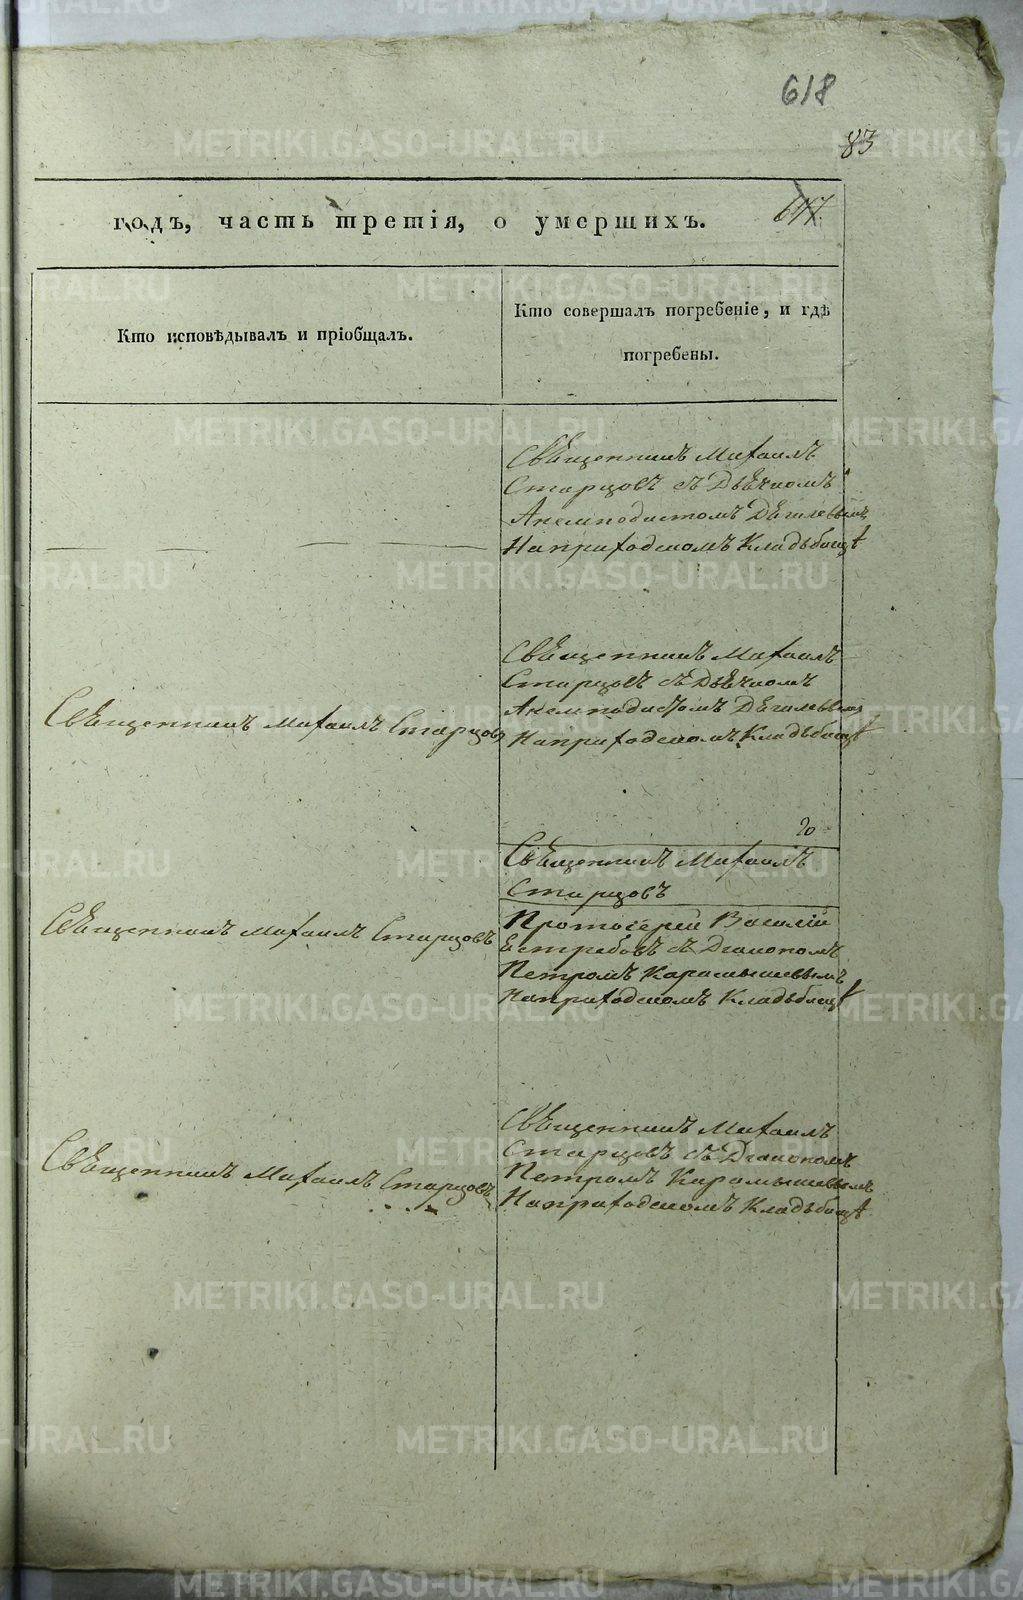 618
83
годъ, часть третія, о умершихъ.
647.
Кто исповѣдывалъ и пріобщалъ.
Кто совершалъ погребеніе, и гдѣ
погребены.
Священникъ Михаилъ
Старцовъ съ Дьячкомъ
Анемподистомъ Дѣгилевымъ
На приходскомъ Кладьбищѣ
Священникъ Михаилъ Старцовъ
Священникъ Михаилъ
Старцовъ съ Дьячкомъ
Анемподистомъ Дѣгилевымъ
На приходскомъ Кладьбищѣ
20
Священникъ Михаилъ Старцовъ
Священникъ Михаилъ
Старцовъ
Протоіерей Василій
Ястребовъ съ Діакономъ
Петромъ Карамышевымъ
На приходскомъ Кладьбищѣ
Священникъ Михаилъ Старцовъ
Священникъ Михаилъ
Старцовъ съ Діакономъ
Петромъ Карамышевымъ
На приходскомъ Кладьбищѣ
METRIKI.GASO-URAL.RU